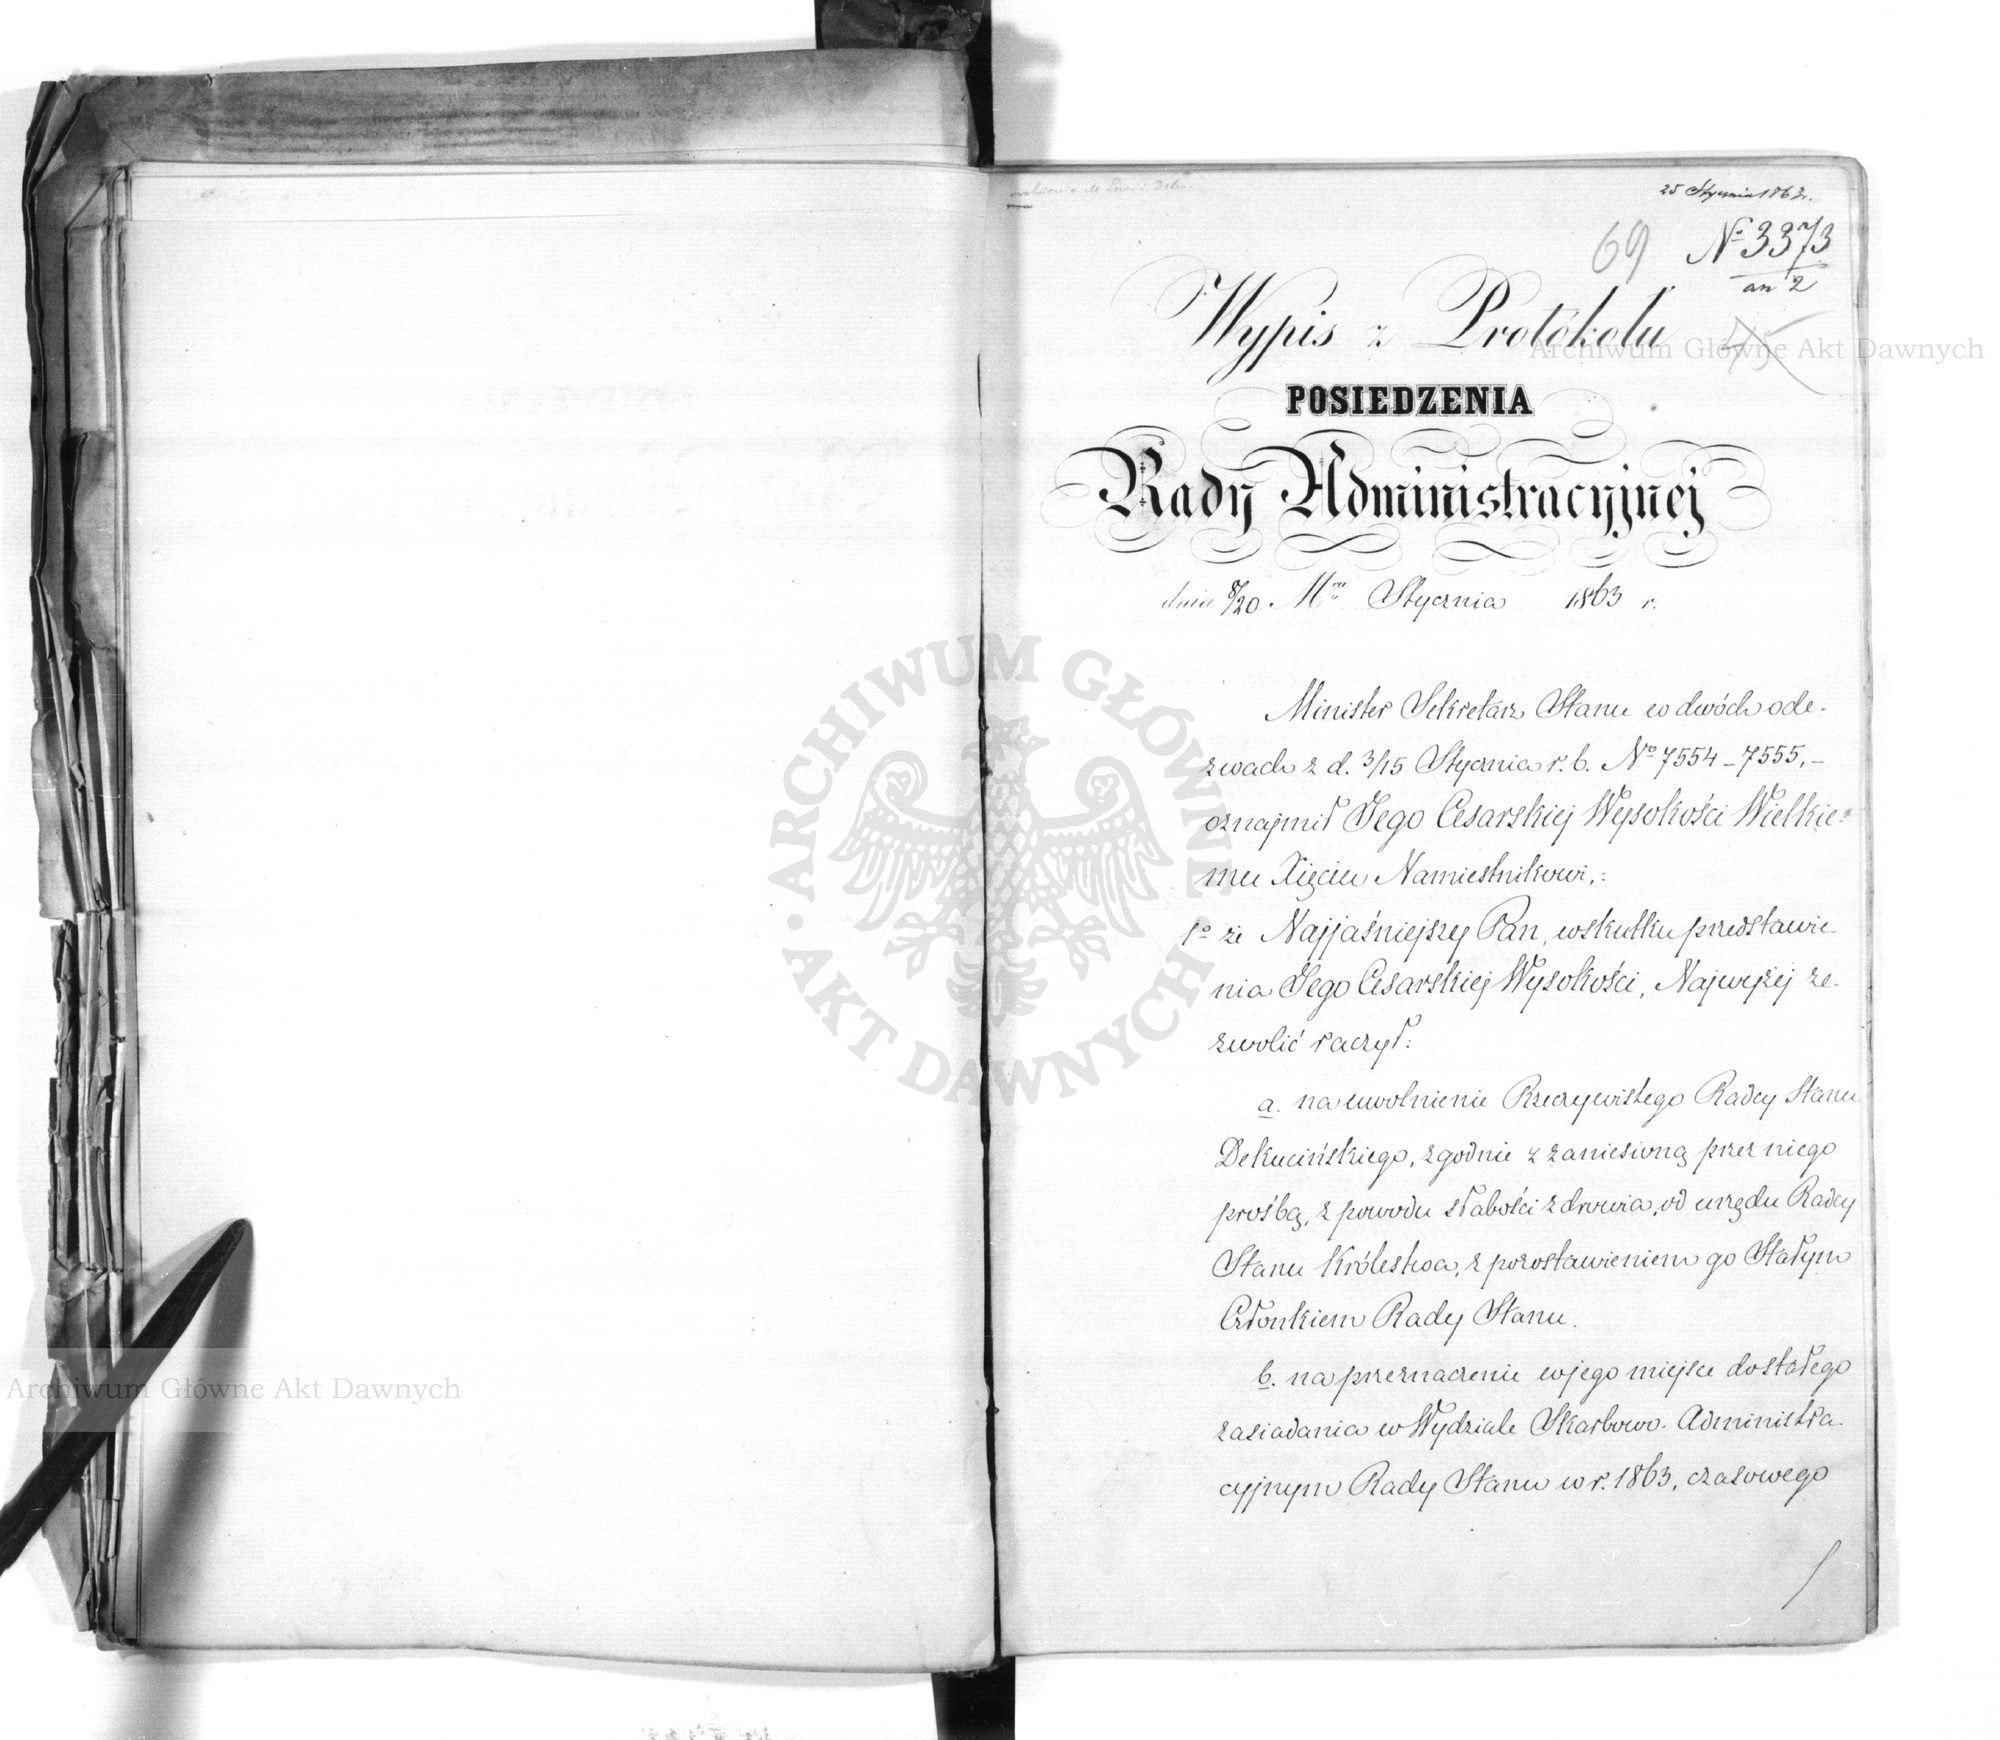 25 Stycznia 1863 r.
69 No 3373
an 2
45
Wypis z Protókołu
POSIEDZENIA
Rady Administracyjnej
dnia 8/20 Mca Stycznia 1863 r.
Minister Sekretarz Stanu w dwóch ode-
zwach z d. 3/15 Stycznia r. b. No 7554 – 7555, –
oznajmił Jego Cesarskiej Wysokości Wielkie-
mu Xięciu Namiestnikowi,:
1o że Najjaśniejszy Pan, wskutku przedstawie-
nia Jego Cesarskiej Wysokości, Najwyżej ze-
zwolić raczył:
a. na uwolnienie Rzeczywistego Radcy Stanu
Dekucińskiego, zgodnie z zaniesioną przez niego
prośbą, z powodu słabości zdrowia, od urzędu Radcy
Stanu Królestwa, z pozostawieniem go Stałym
Członkiem Rady Stanu.
b. na przeznaczenie w jego miejsce do stałego
zasiadania w Wydziale Skarbowo-Administra-
cyjnym Rady Stanu w r. 1863, czasowego
Archiwum Główne Akt Dawnych
ARCHIWUM GŁÓWNE · AKT DAWNYCH ·
Archiwum Główne Akt Dawnych